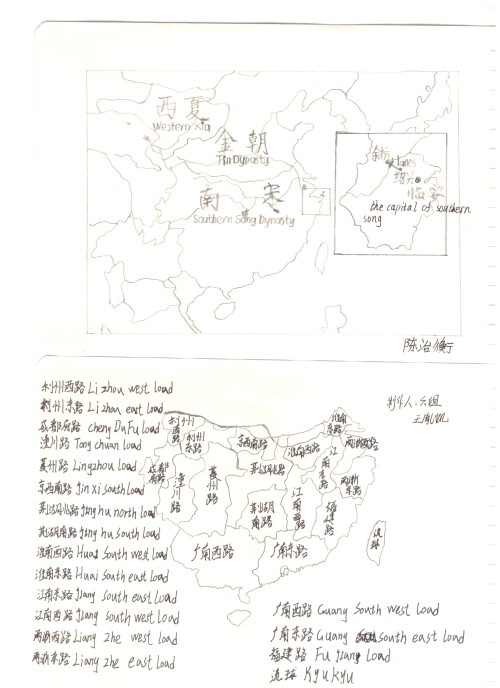 西夏
Western Xia
金朝
Jin Dynasty
南宋
Southern Song Dynasty
余杭
绍兴
临安
the capital of southern
song
利州西路 Lizhou west load
利州东路 Lizhou east load
成都府路 cheng Du Fu load
潼川路 Tong chuan load
夔州路 Lingzhou load
京西南路 Jin xi south load
荆湖北路 Jing hu north load
荆湖南路 Jing hu south load
淮南西路 Huai south west load
淮南东路 Huai south east load
江南东路 Jiang south east load
江南西路 Jiang south west load
两浙西路 Liang zhe west load
两浙东路 Liang zhe east load
制作人:六组
利州西路
利州东路
成都府路
潼川路
夔州路
京西南路
荆湖北路
荆湖南路
淮南西路
淮南东路
江南东路
江南西路
两浙西路
两浙东路
福建路
广南西路
广南东路
流球
广南西路 Guang south west load
广南东路 Guang south east load
福建路 Fu jiang load
流球 Kyukyu